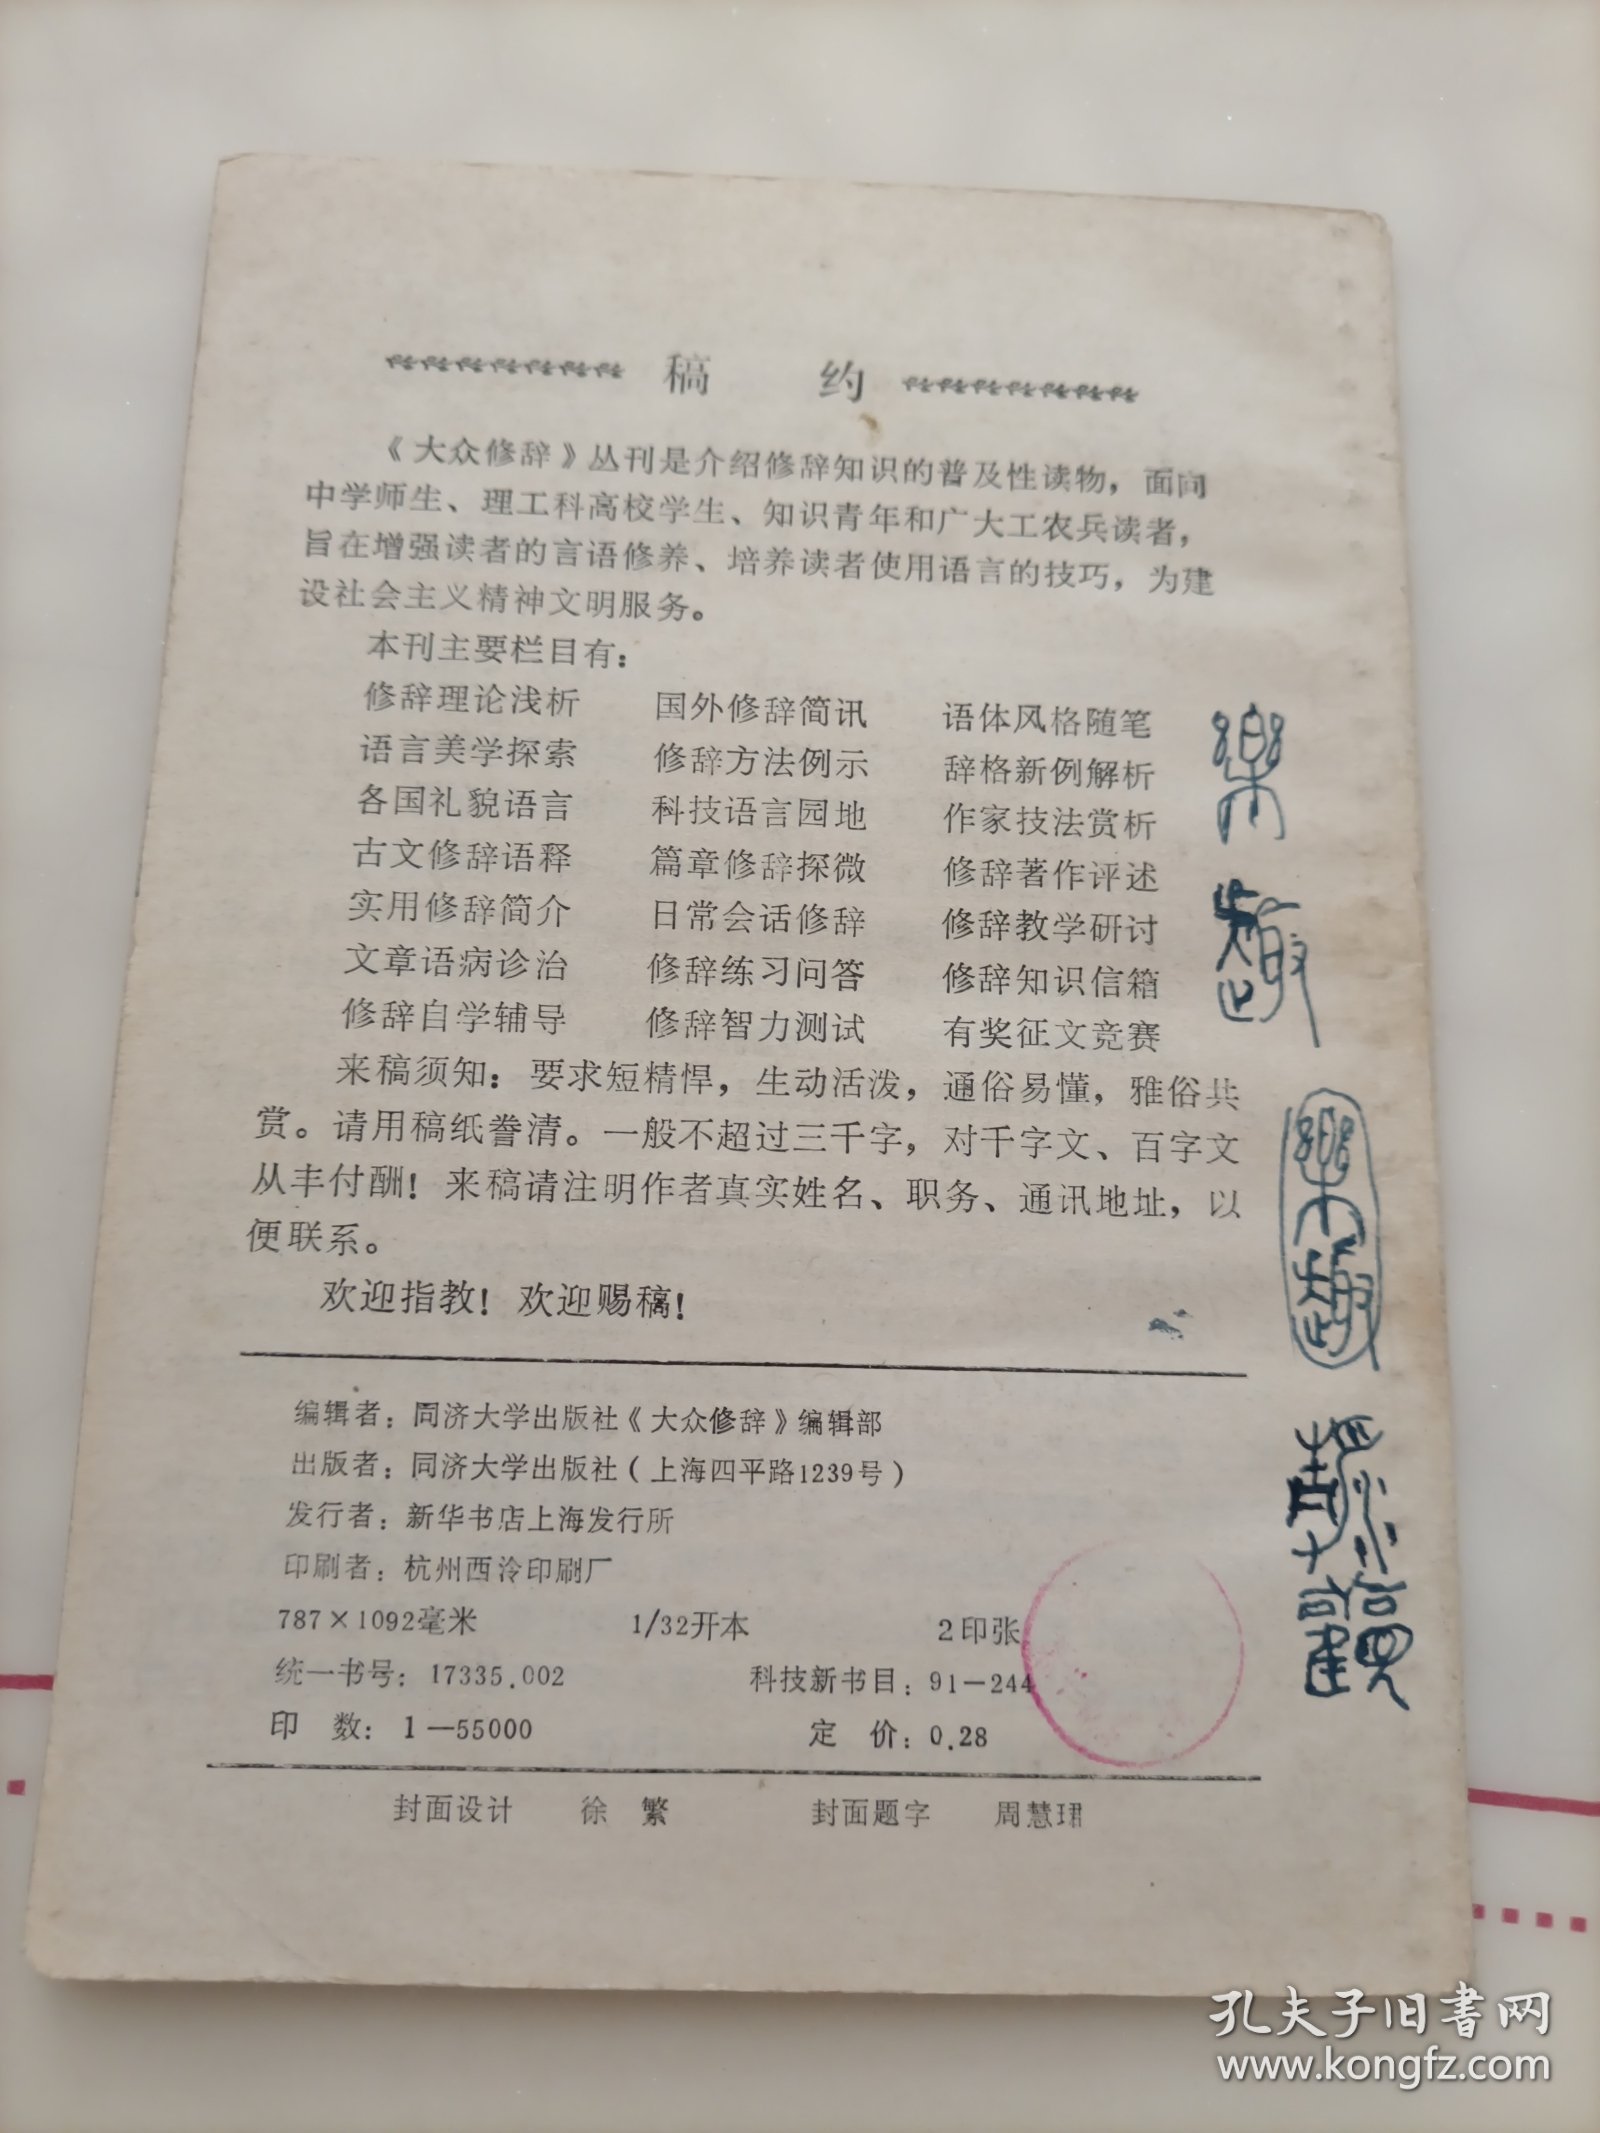 稿 约
《大众修辞》丛刊是介绍修辞知识的普及性读物，面向
中学师生、理工科高校学生、知识青年和广大工农兵读者，
旨在增强读者的言语修养、培养读者使用语言的技巧，为建
设社会主义精神文明服务。
本刊主要栏目有：
修辞理论浅析 国外修辞简讯 语体风格随笔
语言美学探索 修辞方法例示 辞格新例解析
各国礼貌语言 科技语言园地 作家技法赏析
古文修辞语释 篇章修辞探微 修辞著作评述
实用修辞简介 日常会话修辞 修辞教学研讨
文章语病诊治 修辞练习问答 修辞知识信箱
修辞自学辅导 修辞智力测试 有奖征文竞赛
来稿须知：要求短精悍，生动活泼，通俗易懂，雅俗共
赏。请用稿纸誊清。一般不超过三千字，对千字文、百字文
从丰付酬！来稿请注明作者真实姓名、职务、通讯地址，以
便联系。
欢迎指教！欢迎赐稿！
编辑者：同济大学出版社《大众修辞》编辑部
出版者：同济大学出版社（上海四平路1239号）
发行者：新华书店上海发行所
印刷者：杭州西泠印刷厂
787×1092毫米 1/32开本 2印张
统一书号：17335.002 科技新书目：91—244
印 数：1—55000 定 价：0.28
封面设计 徐 繁 封面题字 周慧珺
樂
趣
樂趣
孔夫子旧书网
www.kongfz.com